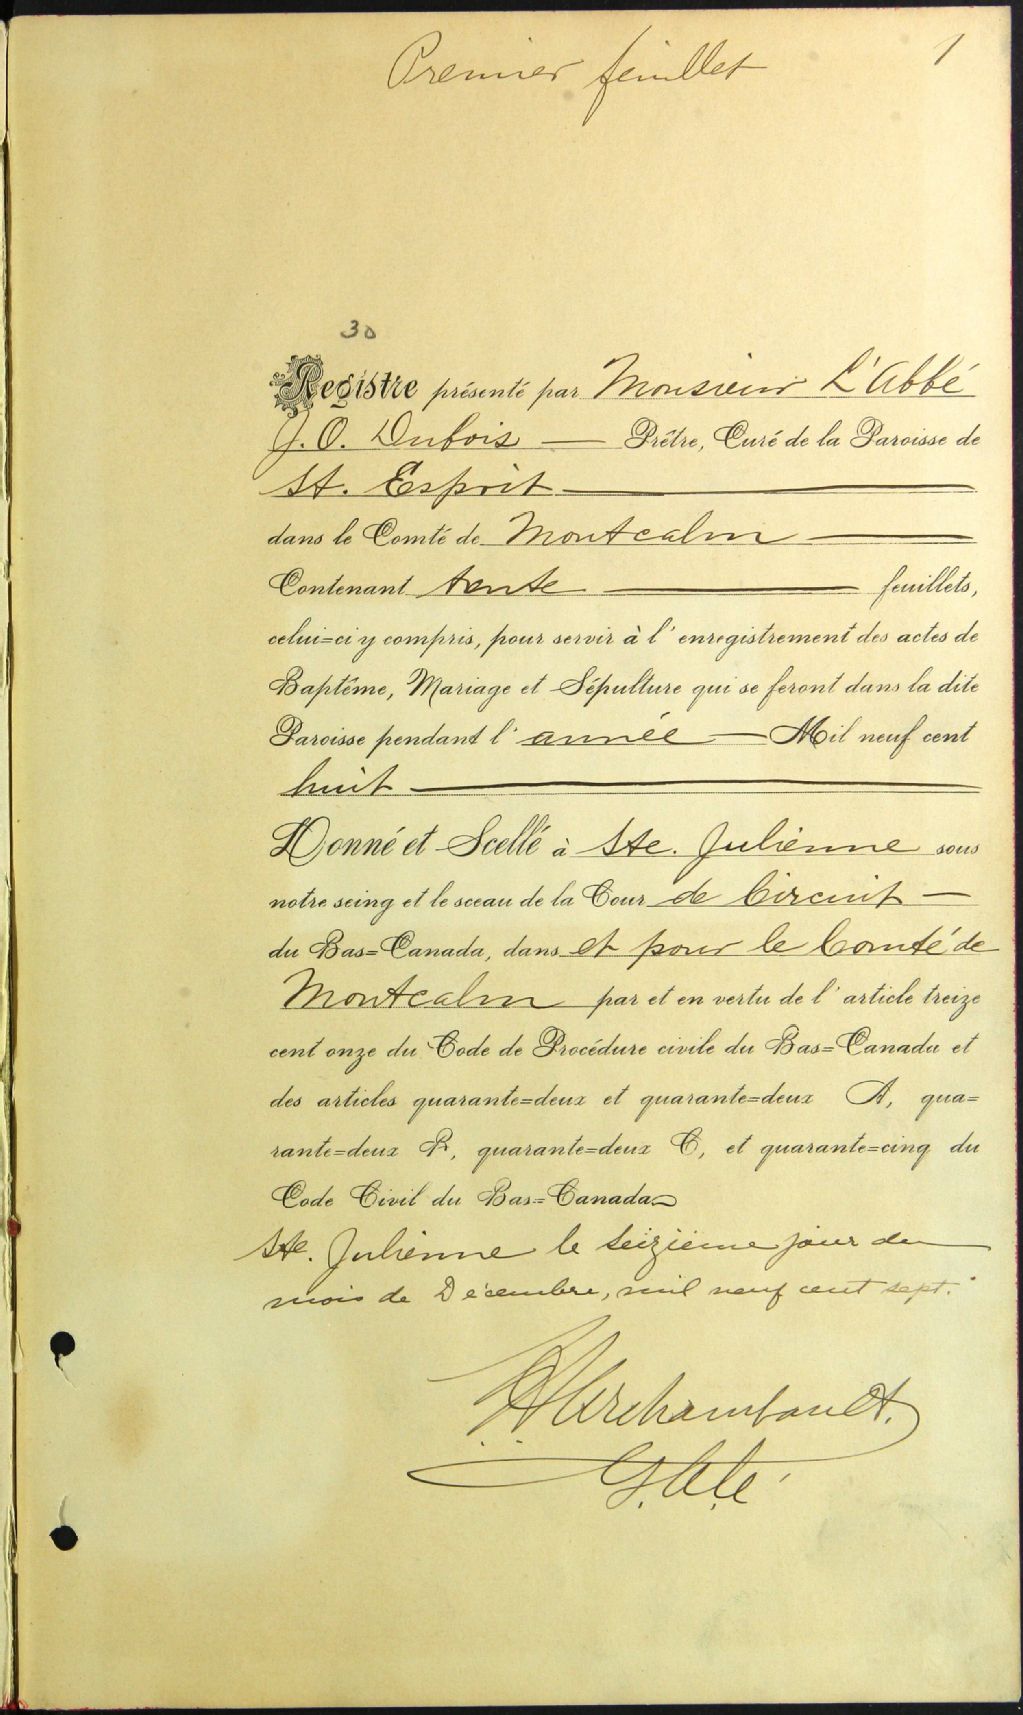 Premier feuillet
1
30
Registre présenté par Monsieur L'Abbé
J. O. Dubois — Prêtre, Curé de la Paroisse de
St. Esprit —
dans le Comté de Montcalm —
Contenant trente — feuillets,
celui=ci y compris, pour servir à l'enregistrement des actes de
Baptême, Mariage et Sépulture qui se feront dans la dite
Paroisse pendant l'année — Mil neuf cent
huit —
Donné et Scellé à Ste. Julienne sous
notre seing et le sceau de la Cour de Circuit —
du Bas=Canada, dans et pour le Comté de
Montcalm par et en vertu de l'article treize
cent onze du Code de Procédure civile du Bas=Canada et
des articles quarante=deux et quarante=deux A, qua=
rante=deux B, quarante=deux C, et quarante=cinq du
Code Civil du Bas=Canada
Ste. Julienne le seizième jour du
mois de Décembre, mil neuf cent sept.
Archambault.